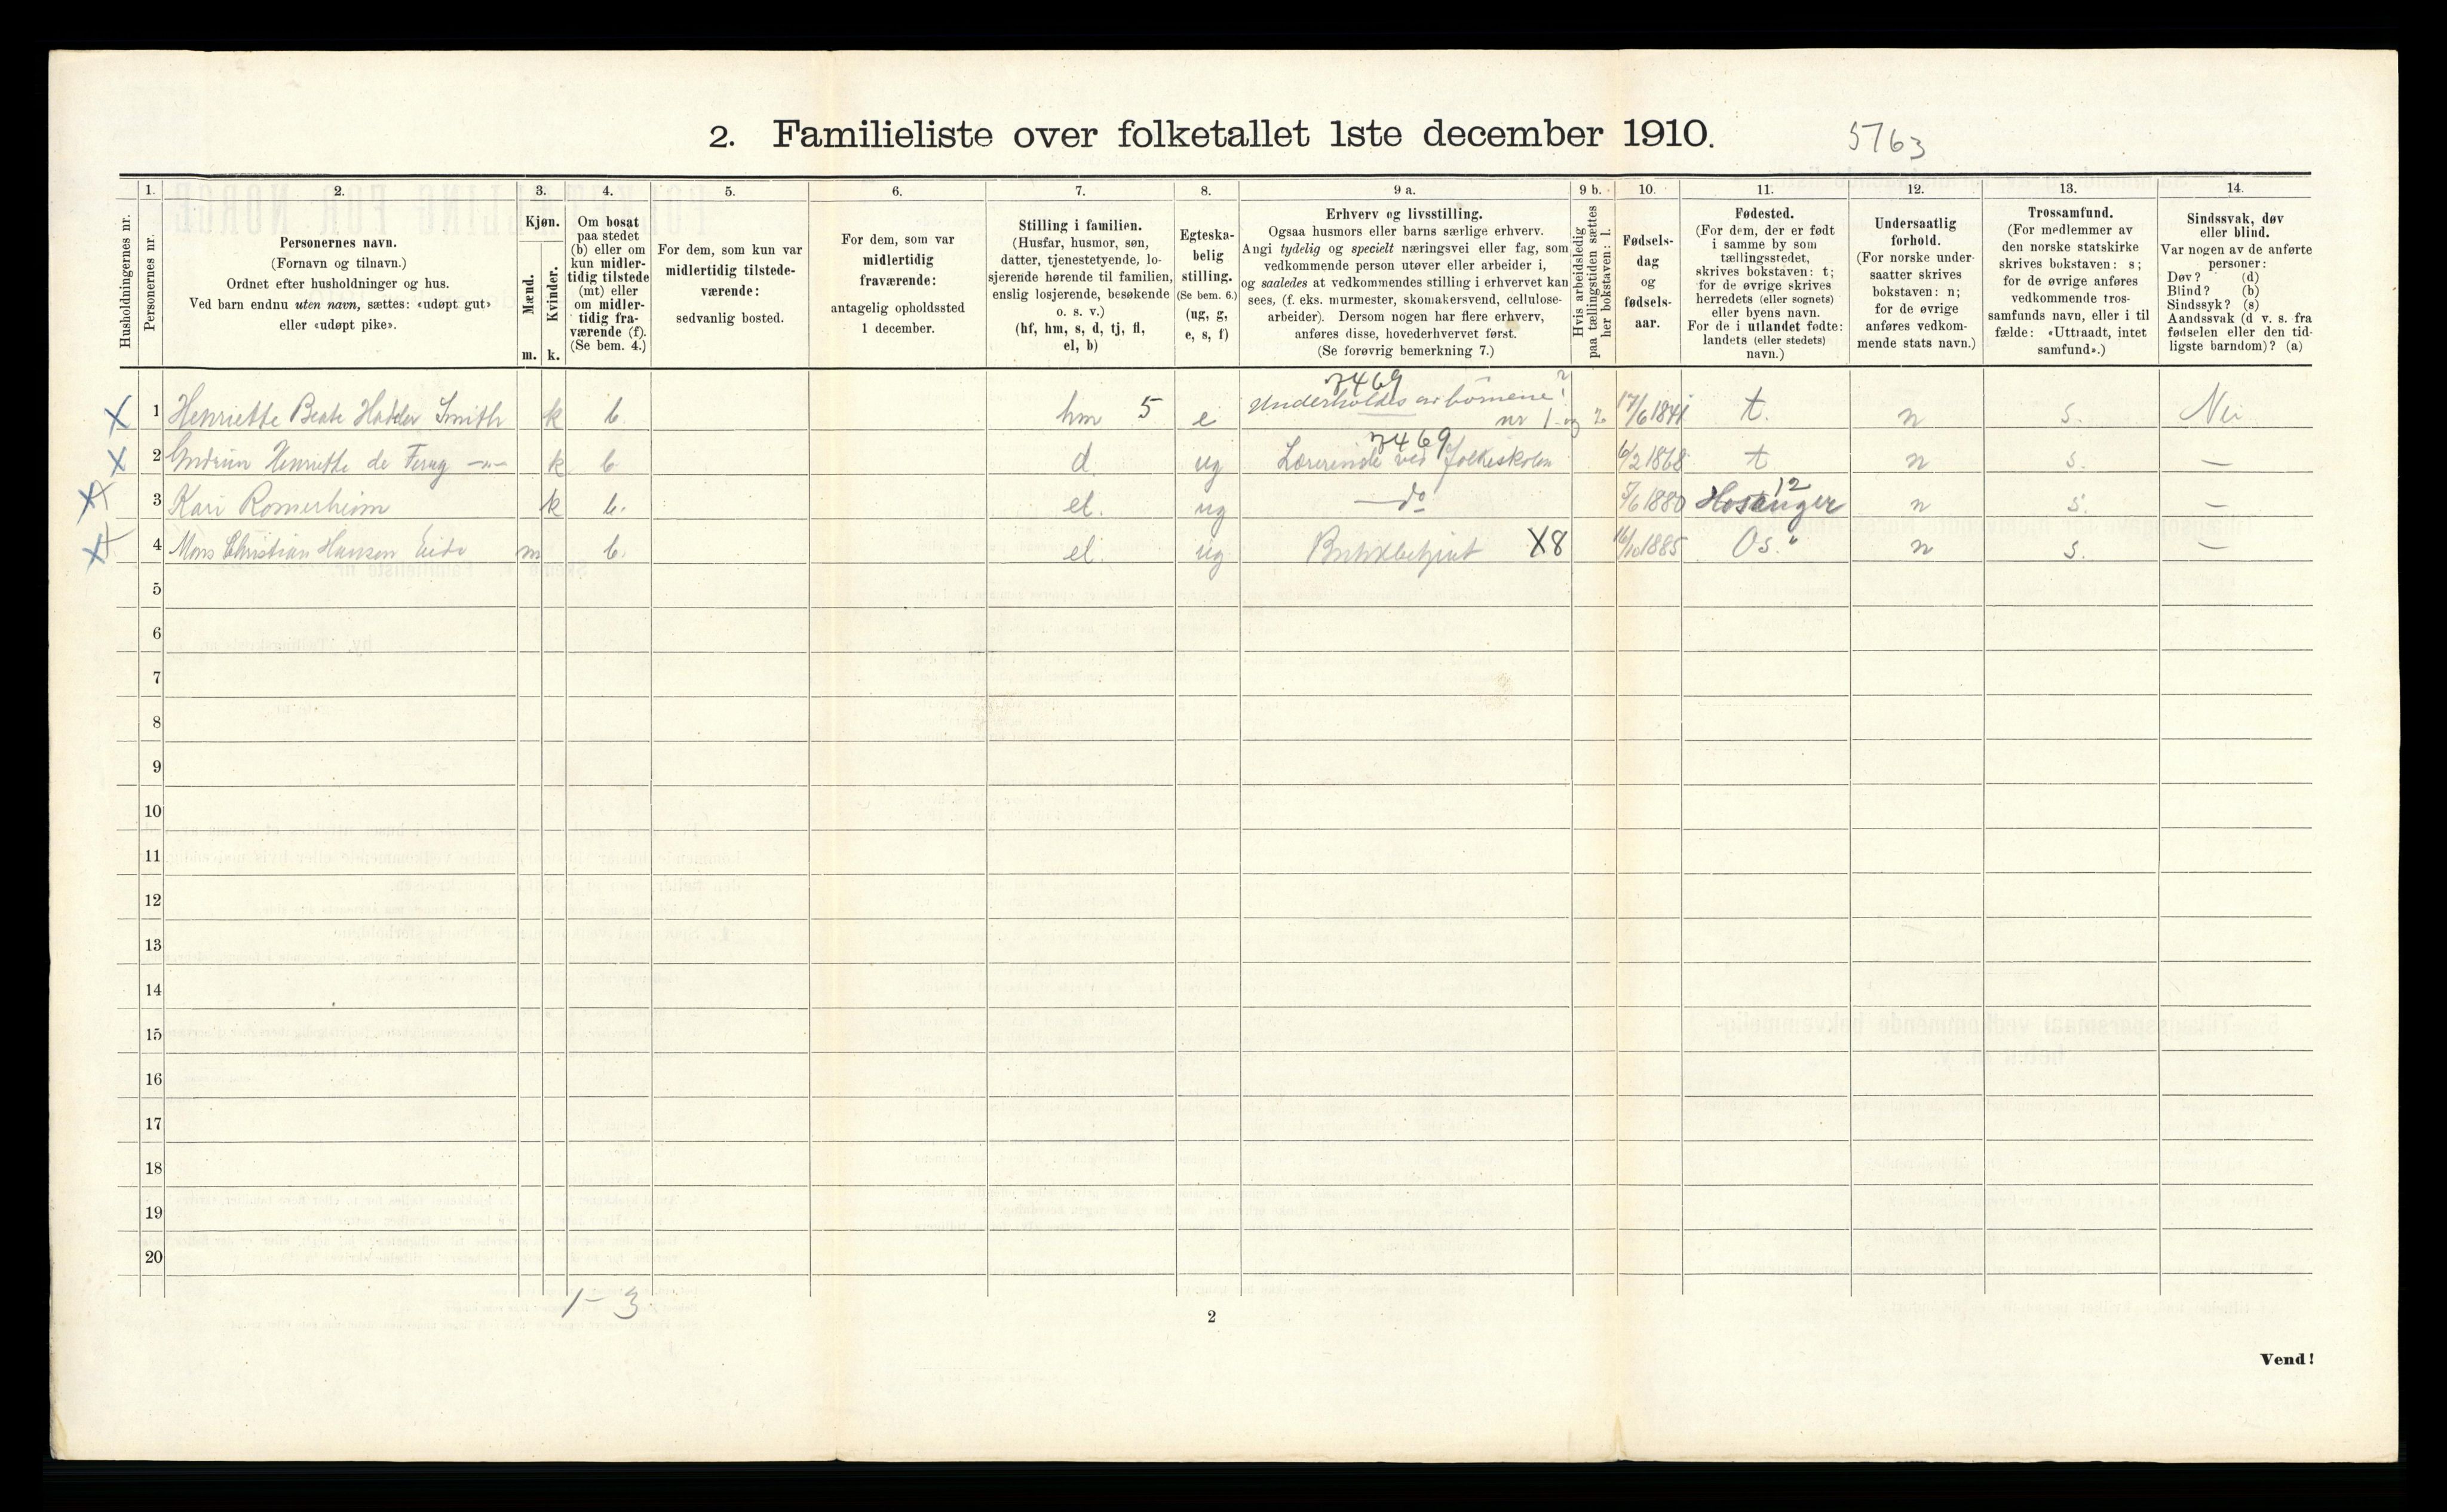 2. Familieliste over folketallet 1ste december 1910.
5763
Husholdningernes nr.
1.
Personernes nr.
2.
Personernes navn.
(Fornavn og tilnavn.)
Ordnet efter husholdninger og hus.
Ved barn endnu uten navn, sættes: «udøpt gut»
eller «udøpt pike».
3.
Kjøn.
Mænd.
Kvinder.
m. k.
4.
Om bosat
paa stedet
(b) eller om
kun midler-
tidig tilstede
(mt) eller
om midler-
tidig fra-
værende (f).
(Se bem. 4.)
5.
For dem, som kun var
midlertidig tilstede-
værende:
sedvanlig bosted.
6.
For dem, som var
midlertidig
fraværende:
antagelig opholdssted
1 december.
7.
Stilling i familien.
(Husfar, husmor, søn,
datter, tjenestetyende, lo-
sjerende hørende til familien,
enslig losjerende, besøkende
o. s. v.)
(hf, hm, s, d, tj, fl,
el, b)
8.
Egteska-
belig
stilling.
(Se bem. 6.)
(ug, g,
e, s, f)
9 a.
Erhverv og livsstilling.
Ogsaa husmors eller barns særlige erhverv.
Angi tydelig og specielt næringsvei eller fag, som
vedkommende person utøver eller arbeider i,
og saaledes at vedkommendes stilling i erhvervet kan
sees, (f. eks. murmester, skomakersvend, cellulose-
arbeider). Dersom nogen har flere erhverv,
anføres disse, hovederhvervet først.
(Se forøvrig bemerkning 7.)
9 b.
Hvis arbeidsledig
paa tællingstiden sættes
her bokstaven: l.
10.
Fødsels-
dag
og
fødsels-
aar.
11.
Fødested.
(For dem, der er født
i samme by som
tællingsstedet,
skrives bokstaven: t;
for de øvrige skrives
herredets (eller sognets)
eller byens navn.
For de i utlandet fødte:
landets (eller stedets)
navn.)
12.
Undersaatlig
forhold.
(For norske under-
saatter skrives
bokstaven: n;
for de øvrige
anføres vedkom-
mende stats navn.)
13.
Trossamfund.
(For medlemmer av
den norske statskirke
skrives bokstaven: s;
for de øvrige anføres
vedkommende tros-
samfunds navn, eller i til
fælde: «Uttraadt, intet
samfund».)
14.
Sindssvak, døv
eller blind.
Var nogen av de anførte
personer:
Døv? (d)
Blind? (b)
Sindssyk? (s)
Aandssvak (d v. s. fra
fødselen eller den tid-
ligste barndom)? (a)
X 1 Henriette Beate Hadder Smith k b. hm 5 e 7469 Underholdes av børnene? nr 1 og 2 17/6 1841 t. n s. Nei
X 2 Henriette de —"— k b d. ug 7469 Lærerinde ved folkeskolen 6/2 1868 t n s. —
X 3 Kari Romerheim k b. el. ug —do 5/6 1880 12 Hosanger n s. —
X 4 Mons Christian Hansen Eide m b. el. ug Butikbetjent X8 16/10 1885 Os. " n s. —
5
6
7
8
9
10
11
12
13
14
15
16
17
18
19
20
1 – 3
2
Vend!